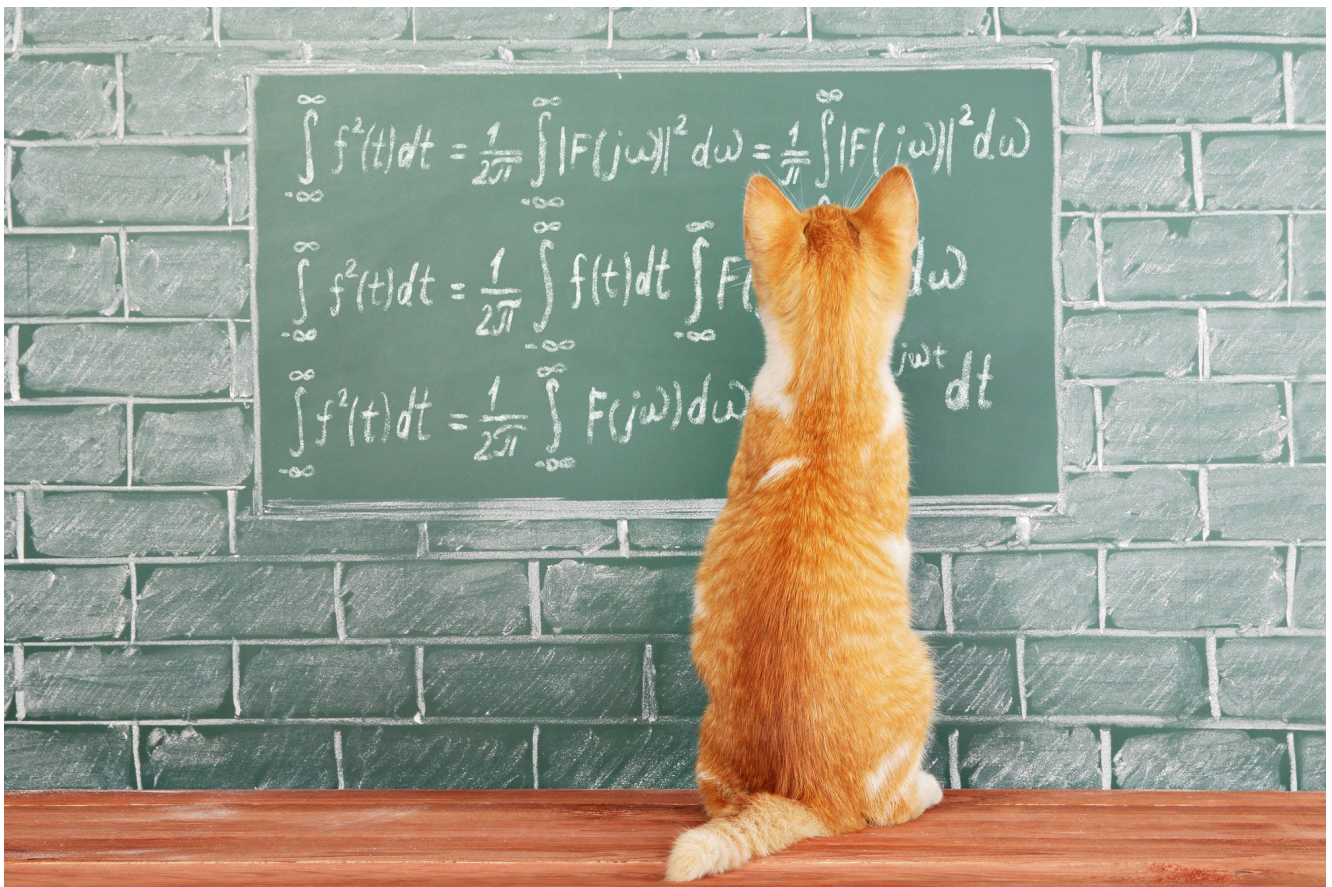 ∞∫-∞ f²(t)dt = 1/2π ∞∫-∞ |F(jω)|² dω = 1/π ∞∫ |F(jω)|² dω
∞∫-∞ f²(t)dt = 1/2π ∞∫-∞ f(t)dt ∞∫-∞ F( dω
∞∫-∞ f²(t)dt = 1/2π ∞∫-∞ F(jω)dω jωt dt